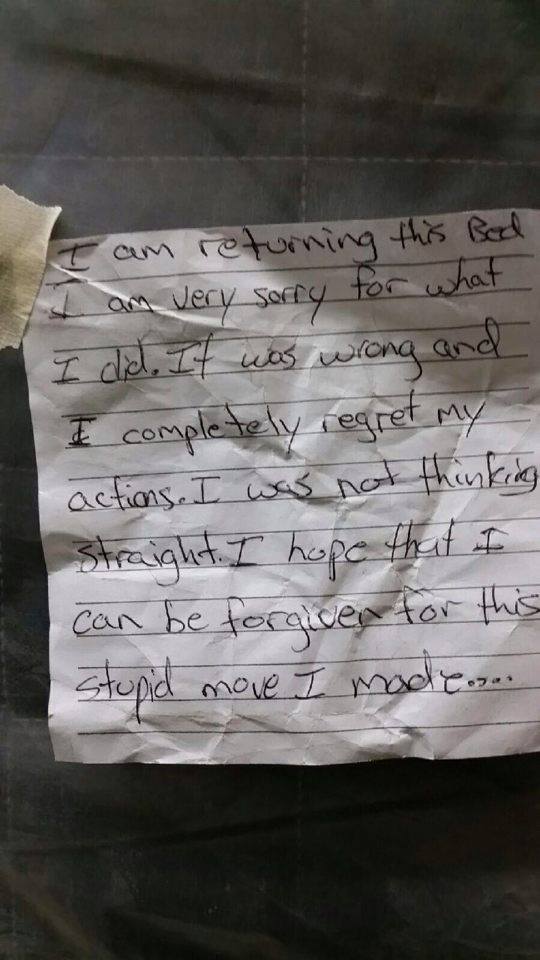 I am returning this Bed
I am very sorry for what
I did. It was wrong and
I completely regret my
actions. I was not thinking
straight. I hope that I
can be forgiven for this
stupid move I made.....